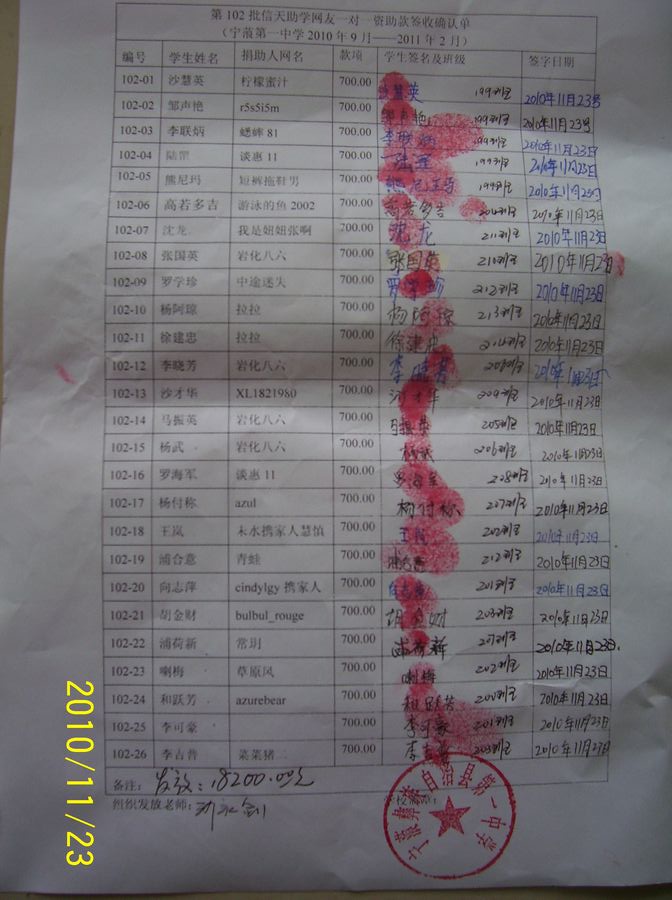 第 102 批信天助学网友一对一资助款签收确认单
（宁蒗第一中学 2010 年 9 月——2011 年 2 月）
编号 学生姓名 捐助人网名 款项 学生签名及班级 签字日期
102-01 沙慧英 柠檬蜜汁 700.00 沙慧英 199班 2010年11月23号
102-02 邹声艳 r5s5i5m 700.00 邹声艳 199班 2010年11月23号
102-03 李联炳 蟋蟀 81 700.00 李联炳 199班 2010年11月23日
102-04 陆罡 谈惠 11 700.00 陆罡 199班 2010年11月23日
102-05 熊尼玛 短裤拖鞋男 700.00 熊尼玛 199班 2010年11月23日
102-06 高若多吉 游泳的鱼 2002 700.00 高若多吉 204班 2010年11月23日
102-07 沈龙 我是妞妞张啊 700.00 沈龙 211班 2010年11月23日
102-08 张国英 岩化八六 700.00 张国英 210班 2010年11月23日
102-09 罗学珍 中途迷失 700.00 罗学珍 212班 2010年11月23日
102-10 杨阿琼 拉拉 700.00 杨阿琼 213班 2010年11月23日
102-11 徐建忠 拉拉 700.00 徐建忠 204班 2010年11月23日
102-12 李晓芳 岩化八六 700.00 李晓芳 208班 2010年11月23日
102-13 沙才华 XL1821980 700.00 沙才华 209班 2010年11月23日
102-14 马振英 岩化八六 700.00 马振英 205班 2010年11月23日
102-15 杨武 岩化八六 700.00 杨武 206班 2010年11月23日
102-16 罗海军 谈惠 11 700.00 罗海军 208班 2010年11月23日
102-17 杨付称 azul 700.00 杨付称 207班 2010年11月23日
102-18 王岚 未水携家人慧慎 700.00 王岚 202班 2010年11月23日
102-19 浦合意 青蛙 700.00 浦合意 212班 2010年11月23日
102-20 向志萍 cindylgy 携家人 700.00 向志萍 201班 2010年11月23日
102-21 胡金财 bulbul_rouge 700.00 胡金财 203班 2010年11月23日
102-22 浦荷新 常玥 700.00 浦荷新 207班 2010年11月23日.
102-23 喇梅 草原风 700.00 喇梅 202班 2010年11月23日
102-24 和跃芳 azurebear 700.00 和跃芳 200班 2010年11月23日
102-25 李可豪 700.00 李可豪 201班 2010年11月23日
102-26 李吉普 菜菜猪 700.00 李吉普 203班 2010年11月23日
备注： 发放：18200.00元
组织发放老师：
宁蒗彝族自治县第一中学
2010/11/23